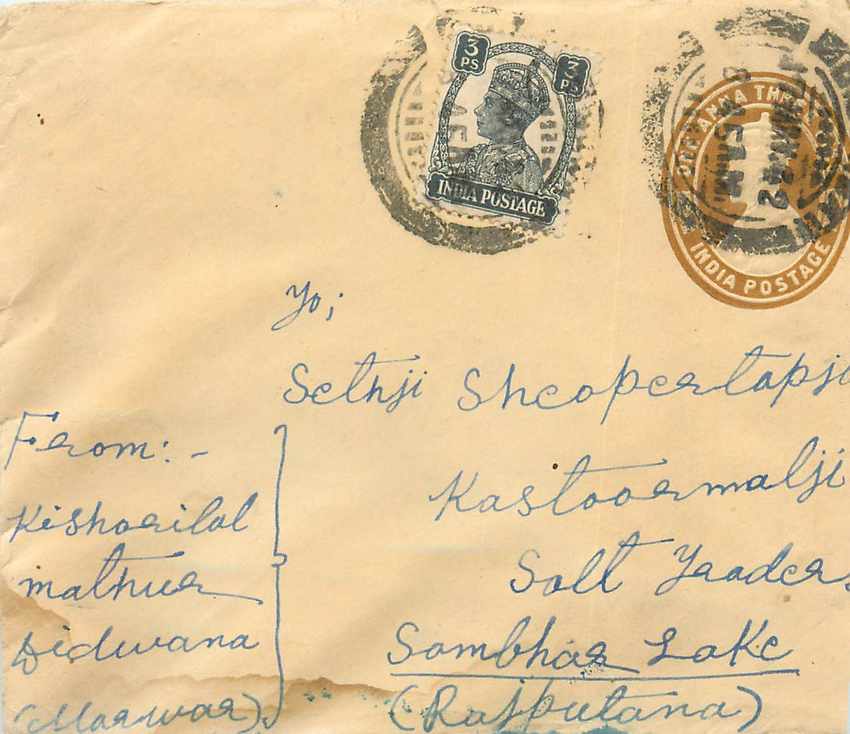 3 PS
3 PS
INDIA POSTAGE
INDIA POSTAGE
To;
Sethji Sheopertapji
Kastoormalji
Salt Traders
Sambhar Lake
(Rajputana)
From:-
Kishorilal
mathur
Didwana
(Marwar)